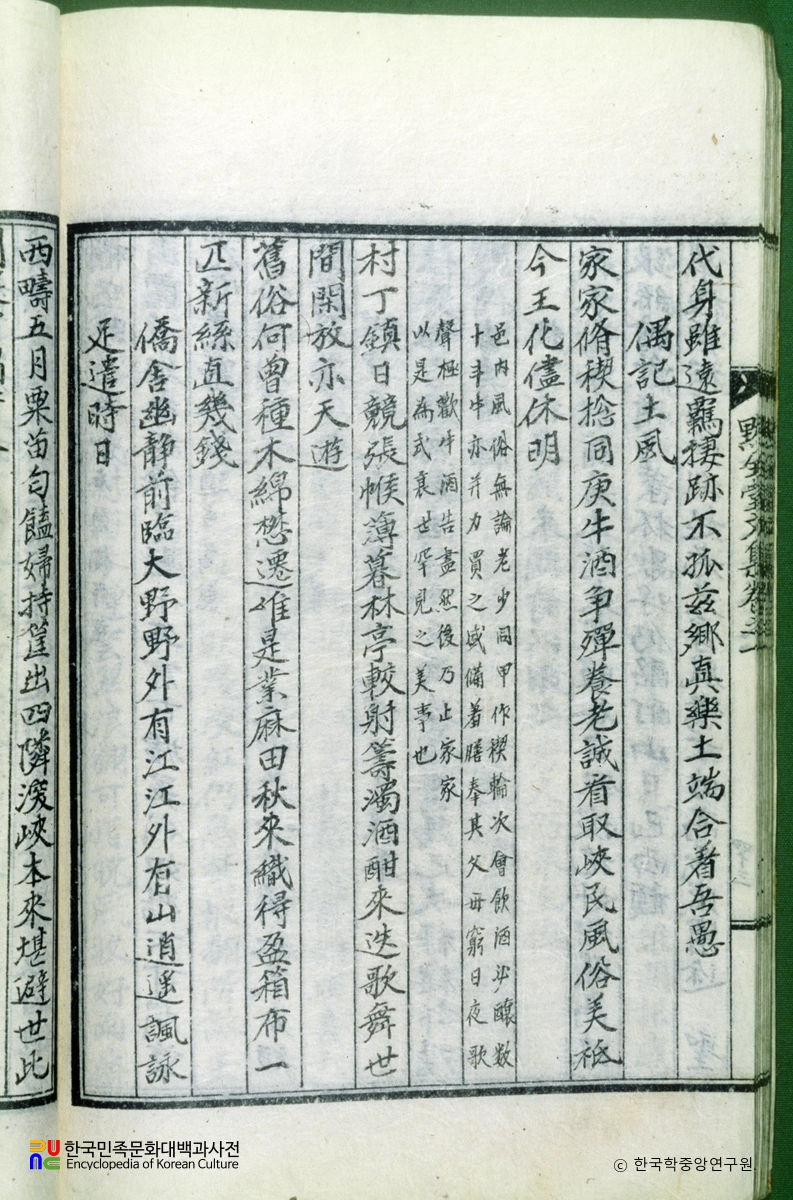 代身雖遠羈捿跡不孤玆鄉真樂土端合着吾愚
偶記土風
家家脩稧捴同庚牛酒争殫養老誠看取峽民風俗美秪
今王化儘休明
邑内風俗無論老少同甲作稧輪次會飮酒必釀数
十斗牛亦并力買之盛備着膳奉其父母窮日夜歌
聲極歡牛酒告盡然後乃止家家
以是為式衰世罕見之美事也
村丁鎮日競張帿薄暮林亭較射籌濁酒酣來迭歌舞世
間閑放亦天遊
舊俗何曾種木綿懋遷唯是業麻田秋來織得盈箱布一
疋新絲直幾錢
僑舍幽静前臨大野野外有江江外有山逍遥諷詠
足遣時日
西疇五月粟苗勻饁婦持筐出四隣深峽本來堪避世此
한국민족문화대백과사전
Encyclopedia of Korean Culture
ⓒ 한국학중앙연구원